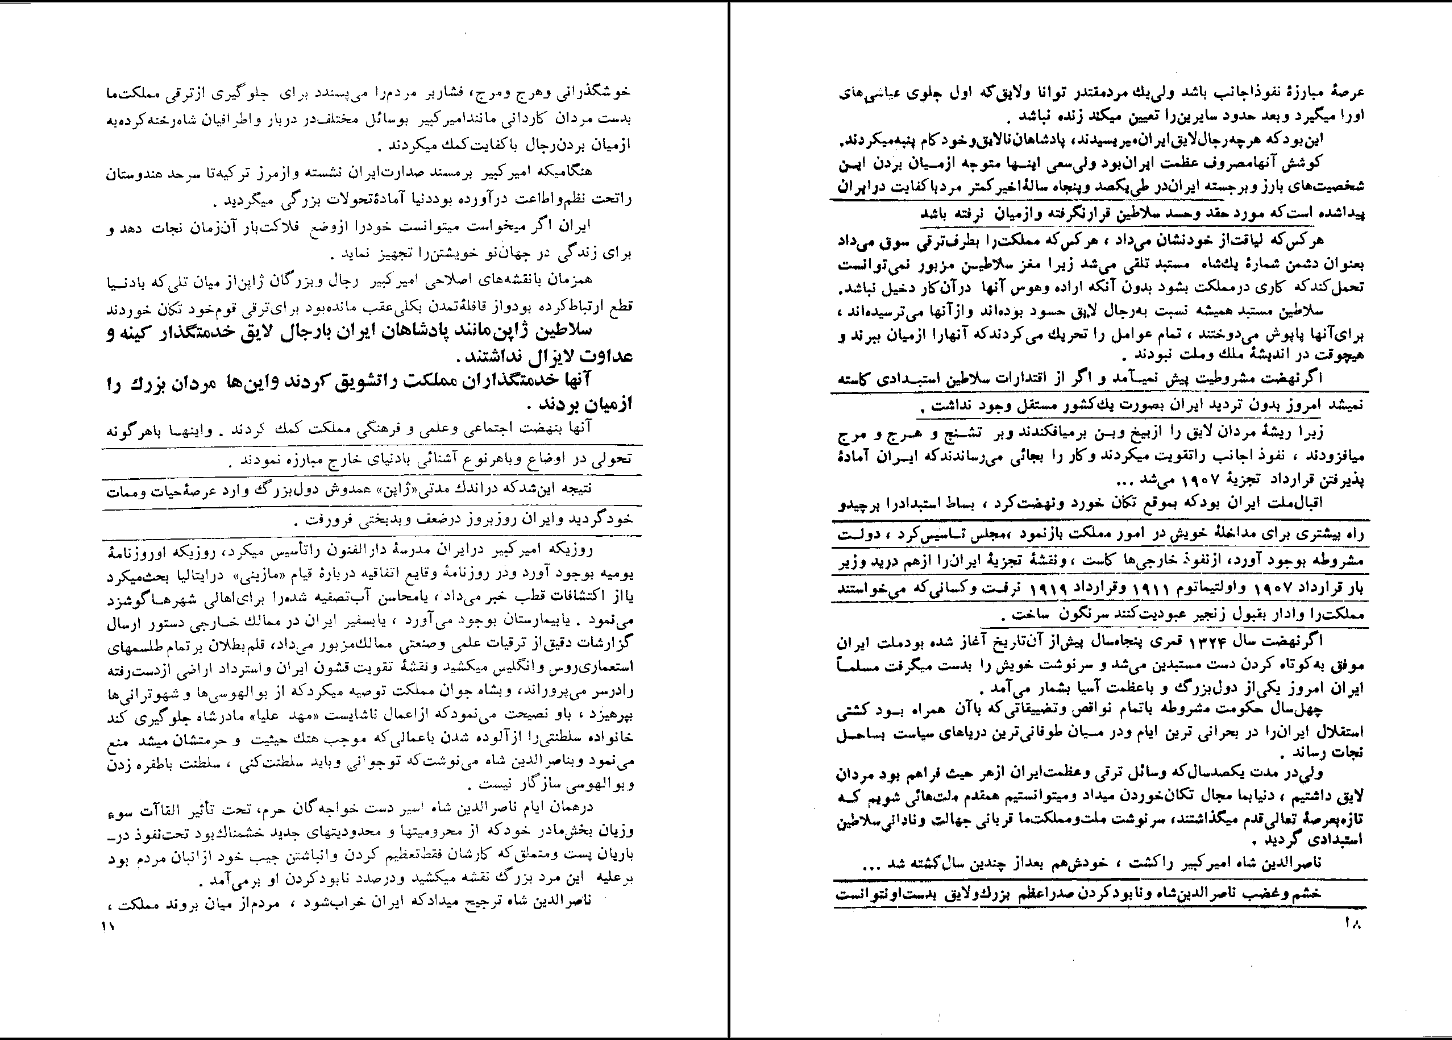 عرصهٔ مبارزهٔ نفوذ اجانب باشد ولی یك مرد مقتدر توانا ولایق که اول جلوی عیاشی‌های
اورا میگیرد و بعد حدود سایرین را تعیین میکند زنده نباشد .
این بود که هرچه رجال لایق ایران میرسیدند، پادشاهان نالایق و خودکام پنبه میکردند.
کوشش آنها مصروف عظمت ایران بود ولی سعی اینها متوجه ازمیان بردن این
شخصیت‌های بارز و برجسته ایران در طی یکصد و پنجاه سالهٔ اخیر کمتر مرد باکفایت در ایران
پیدا شده است که مورد حقد و حسد سلاطین قرار نگرفته و ازمیان نرفته باشد
هرکس که لیاقت از خود نشان می‌داد ، هرکس که مملکت را بطرف ترقی سوق می‌داد
بعنوان دشمن شمارهٔ یك شاه مستبد تلقی می‌شد زیرا مغز سلاطین مزبور نمی‌توانست
تحمل کند که کاری در مملکت بشود بدون آنکه اراده وهوس آنها در آن کار دخیل نباشد.
سلاطین مستبد همیشه نسبت به رجال لایق حسود بوده‌اند و از آنها می‌ترسیده‌اند ،
برای آنها پاپوش می‌دوختند ، تمام عوامل را تحریك می‌کردند که آنهارا ازمیان ببرند و
هیچوقت در اندیشهٔ ملك وملت نبودند .
اگر نهضت مشروطیت پیش نمیآمد و اگر از اقتدارات سلاطین استبدادی کاسته
نمیشد امروز بدون تردید ایران بصورت یك کشور مستقل وجود نداشت .
زیرا ریشهٔ مردان لایق را ازبیخ وبن برمیافکندند وبر تشنج و هرج و مرج
میافزودند ، نفوذ اجانب راتقویت میکردند وکار را بجائی می‌رساندند که ایران آمادهٔ
پذیرفتن قرارداد تجزیهٔ ۱۹۰۷ می‌شد ...
اقبال ملت ایران بود که بموقع تکان خورد ونهضت کرد ، بساط استبداد را برچید و
راه بیشتری برای مداخلهٔ خویش در امور مملکت باز نمود ، مجلس تاسیس کرد ، دولت
مشروطه بوجود آورد، ازنفوذ خارجی‌ها کاست ، ونقشهٔ تجزیهٔ ایران را ازهم درید وزیر
بار قرارداد ۱۹۰۷ و اولتیماتوم ۱۹۱۱ وقرارداد ۱۹۱۹ نرفت و کسانی که می‌خواستند
مملکت را وادار بقبول زنجیر عبودیت کنند سرنگون ساخت .
اگر نهضت سال ۱۳۲۴ قمری پنجاه سال پیش از آن تاریخ آغاز شده بود ملت ایران
موفق به کوتاه کردن دست مستبدین می‌شد و سرنوشت خویش را بدست میگرفت مسلماً
ایران امروز یکی از دول بزرگ و باعظمت آسیا بشمار می‌آمد .
چهل سال حکومت مشروطه باتمام نواقص وتضییقاتی که باآن همراه بود کشتی
استقلال ایران را در بحرانی ترین ایام ودر میان طوفانی‌ترین دریاهای سیاست بساحل
نجات رساند .
ولی در مدت یکصدسال که وسائل ترقی وعظمت ایران ازهر حیث فراهم بود مردان
لایق داشتیم ، دنیا بما مجال تکان خوردن میداد ومیتوانستیم همقدم ملت‌هائی شویم که
تازه بعرصهٔ تعالی قدم میگذاشتند، سرنوشت ملت ومملکت ما قربانی جهالت ونادانی سلاطین
استبدادی گردید .
ناصرالدین شاه امیرکبیر راکشت ، خودش هم بعداز چندین سال کشته شد ...
خشم وغضب ناصرالدین شاه ونابودکردن صدراعظم بزرگ ولایق بدست او نتوانست
۱۸
خوشگذرانی وهرج ومرج، فشاربر مردم را می‌پسندد برای جلوگیری ازترقی مملکت ما
بدست مردان کاردانی مانند امیرکبیر بوسائل مختلف در دربار و اطرافیان شاه رخنه کرده به
ازمیان بردن رجال باکفایت کمك میکردند .
هنگامیکه امیرکبیر برمسند صدارت ایران نشسته و ازمرز ترکیه تا سرحد هندوستان
راتحت نظم واطاعت درآورده بود دنیا آمادهٔ تحولات بزرگی میگردید .
ایران اگر میخواست میتوانست خودرا ازوضع فلاکت بار آن زمان نجات دهد و
برای زندگی در جهان نو خویشتن را تجهیز نماید .
همزمان با نقشه‌های اصلاحی امیرکبیر رجال وبزرگان ژاپن از میان تلی که بادنیا
قطع ارتباط کرده بود و از قافلهٔ تمدن بکلی عقب مانده بود برای ترقی قوم خود تکان خوردند
سلاطین ژاپن مانند پادشاهان ایران بارجال لایق خدمتگذار کینه و
عداوت لایزال نداشتند .
آنها خدمتگذاران مملکت راتشویق کردند واین‌ها مردان بزرك را
ازمیان بردند .
آنها بنهضت اجتماعی وعلمی و فرهنگی مملکت کمك کردند . واینها باهرگونه
تحولی در اوضاع وباهرنوع آشنائی بادنیای خارج مبارزه نمودند .
نتیجه این شد که در اندك مدتی «ژاپن» همدوش دول بزرگ وارد عرصهٔ حیات وممات
خود گردید وایران روزبروز درضعف و بدبختی فرورفت .
روزیکه امیرکبیر درایران مدرسهٔ دارالفنون راتأسیس میکرد، روزیکه او روزنامهٔ
یومیه بوجود آورد ودر روزنامهٔ وقایع اتفاقیه دربارهٔ قیام «مازینی» درایتالیا بحث میکرد
یا از اکتشافات قطب خبر می‌داد ، یا محاسن آب تصفیه شده را برای اهالی شهرها گوشزد
می‌نمود . یابیمارستان بوجود می‌آورد ، یا بسفیر ایران در ممالك خارجی دستور ارسال
گزارشات دقیق از ترقیات علمی وصنعتی ممالك مزبور می‌داد، قلم بطلان برتمام طلسمهای
استعماری روس و انگلیس میکشید ونقشهٔ تقویت قشون ایران واسترداد اراضی ازدست رفته
رادرسر می‌پروراند، و بشاه جوان مملکت توصیه میکرد که از بوالهوسی‌ها و شهوترانی‌ها
بپرهیزد ، باو نصیحت می‌نمود که ازاعمال ناشایست «مهد علیا» مادرشاه جلوگیری کند
خانواده سلطنتی را ازآلوده شدن باعمالی که موجب هتك حیثیت و حرمتشان میشد منع
می‌نمود وبناصرالدین شاه می‌نوشت که توجوانی وباید سلطنت کنی ، سلطنت باطفره زدن
وبوالهوسی سازگار نیست .
درهمان ایام ناصرالدین شاه اسیر دست خواجه گان حرم، تحت تأثیر القاآت سوء
وزیان بخش مادر خود که از محرومیتها و محدودیتهای جدید خشمناك بود تحت نفوذ در-
باریان پست ومتملق که کارشان فقط تعظیم کردن وانباشتن جیب خود ازانبان مردم بود
برعلیه این مرد بزرگ نقشه میکشید ودرصدد نابودکردن او برمی‌آمد .
ناصرالدین شاه ترجیح میداد که ایران خراب شود ، مردم از میان بروند مملکت ،
۱۱